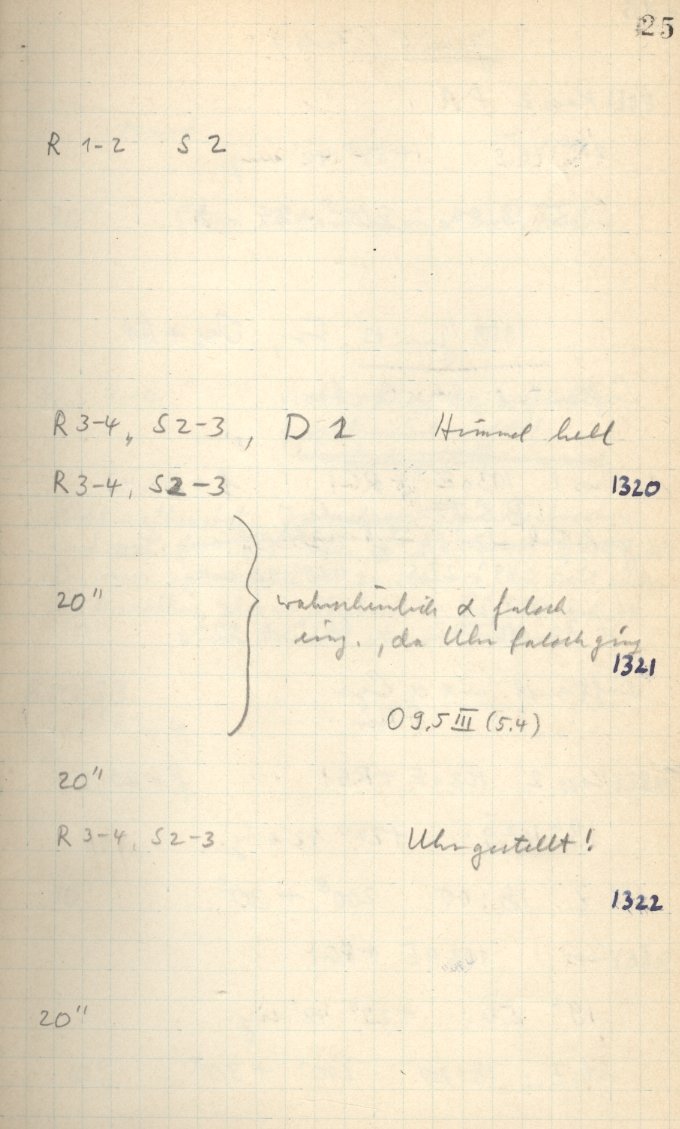 25
R 1-2 S 2
R 3-4, S 2-3, D 1 Himmel hell
R 3-4, S 2-3 1320
20" wahrscheinlich α falsch
eing., da Uhr falsch ging
1321
O 9,5 III (5.4)
20"
R 3-4, S 2-3 Uhr gestellt!
1322
20"